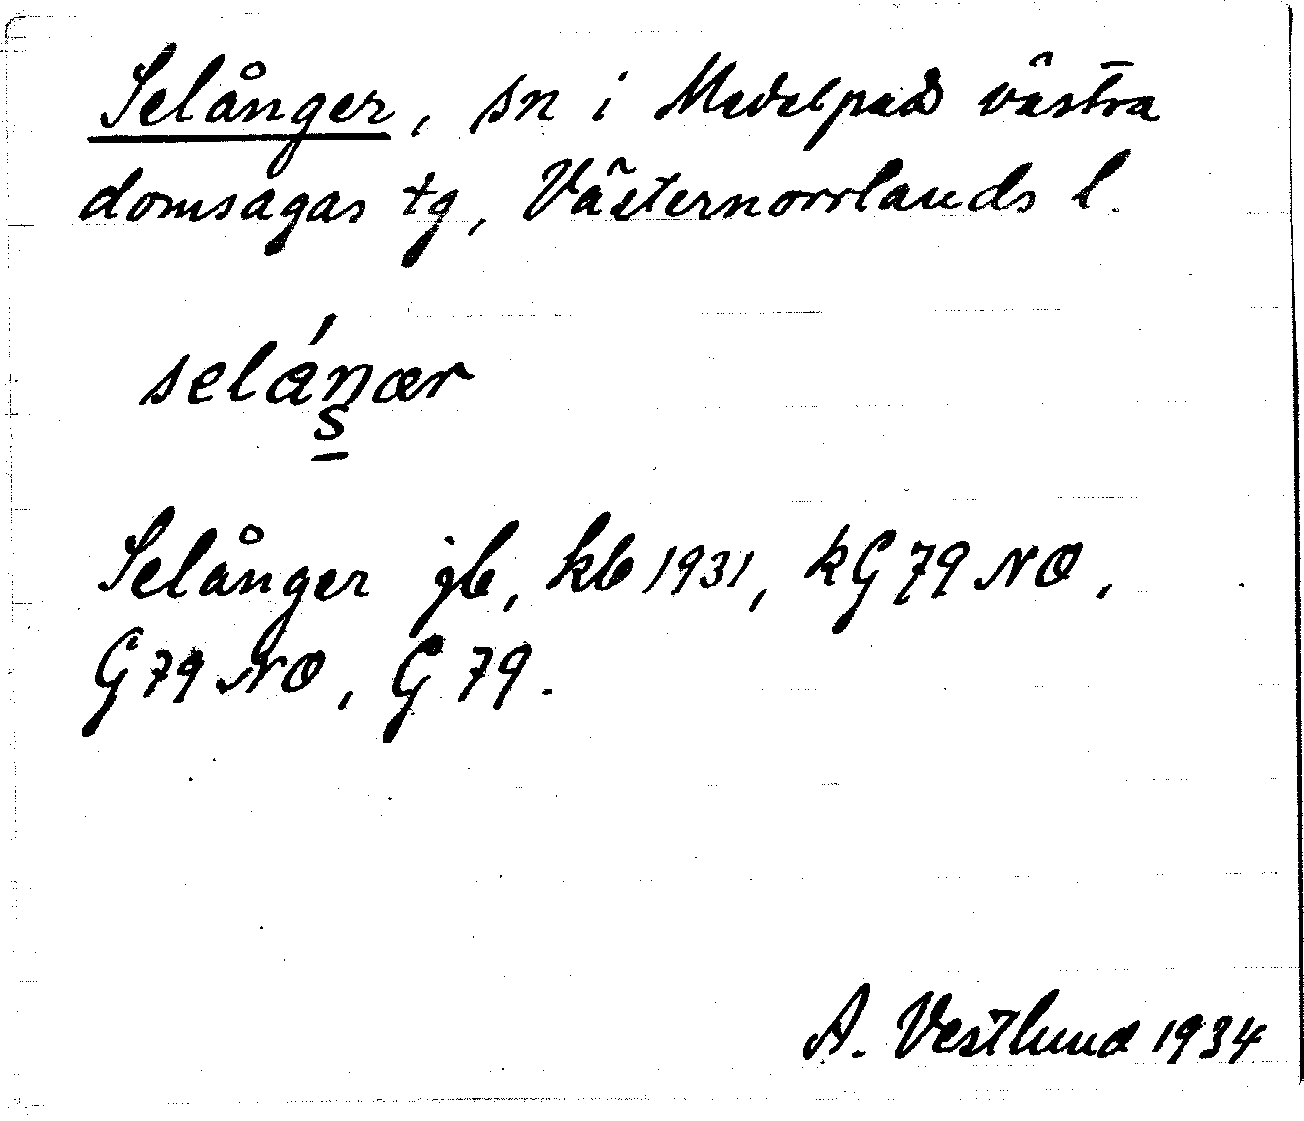 Selånger, sn i Medelpads västra
domsagas tg, Västernorrlands l.
selåŋær
s
Selånger jb, kb 1931, kG 79 NO,
G 79 NO, G 79.
A. Vestlund 1934